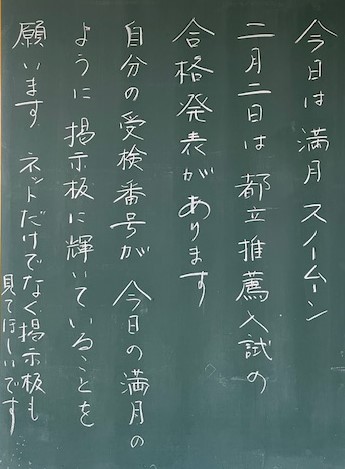 今日は満月スノームーン
二月二日は都立推薦入試の
合格発表があります
自分の受検番号が今日の満月の
ように掲示板に輝いていることを
願います ネットだけでなく掲示板も
見てほしいです